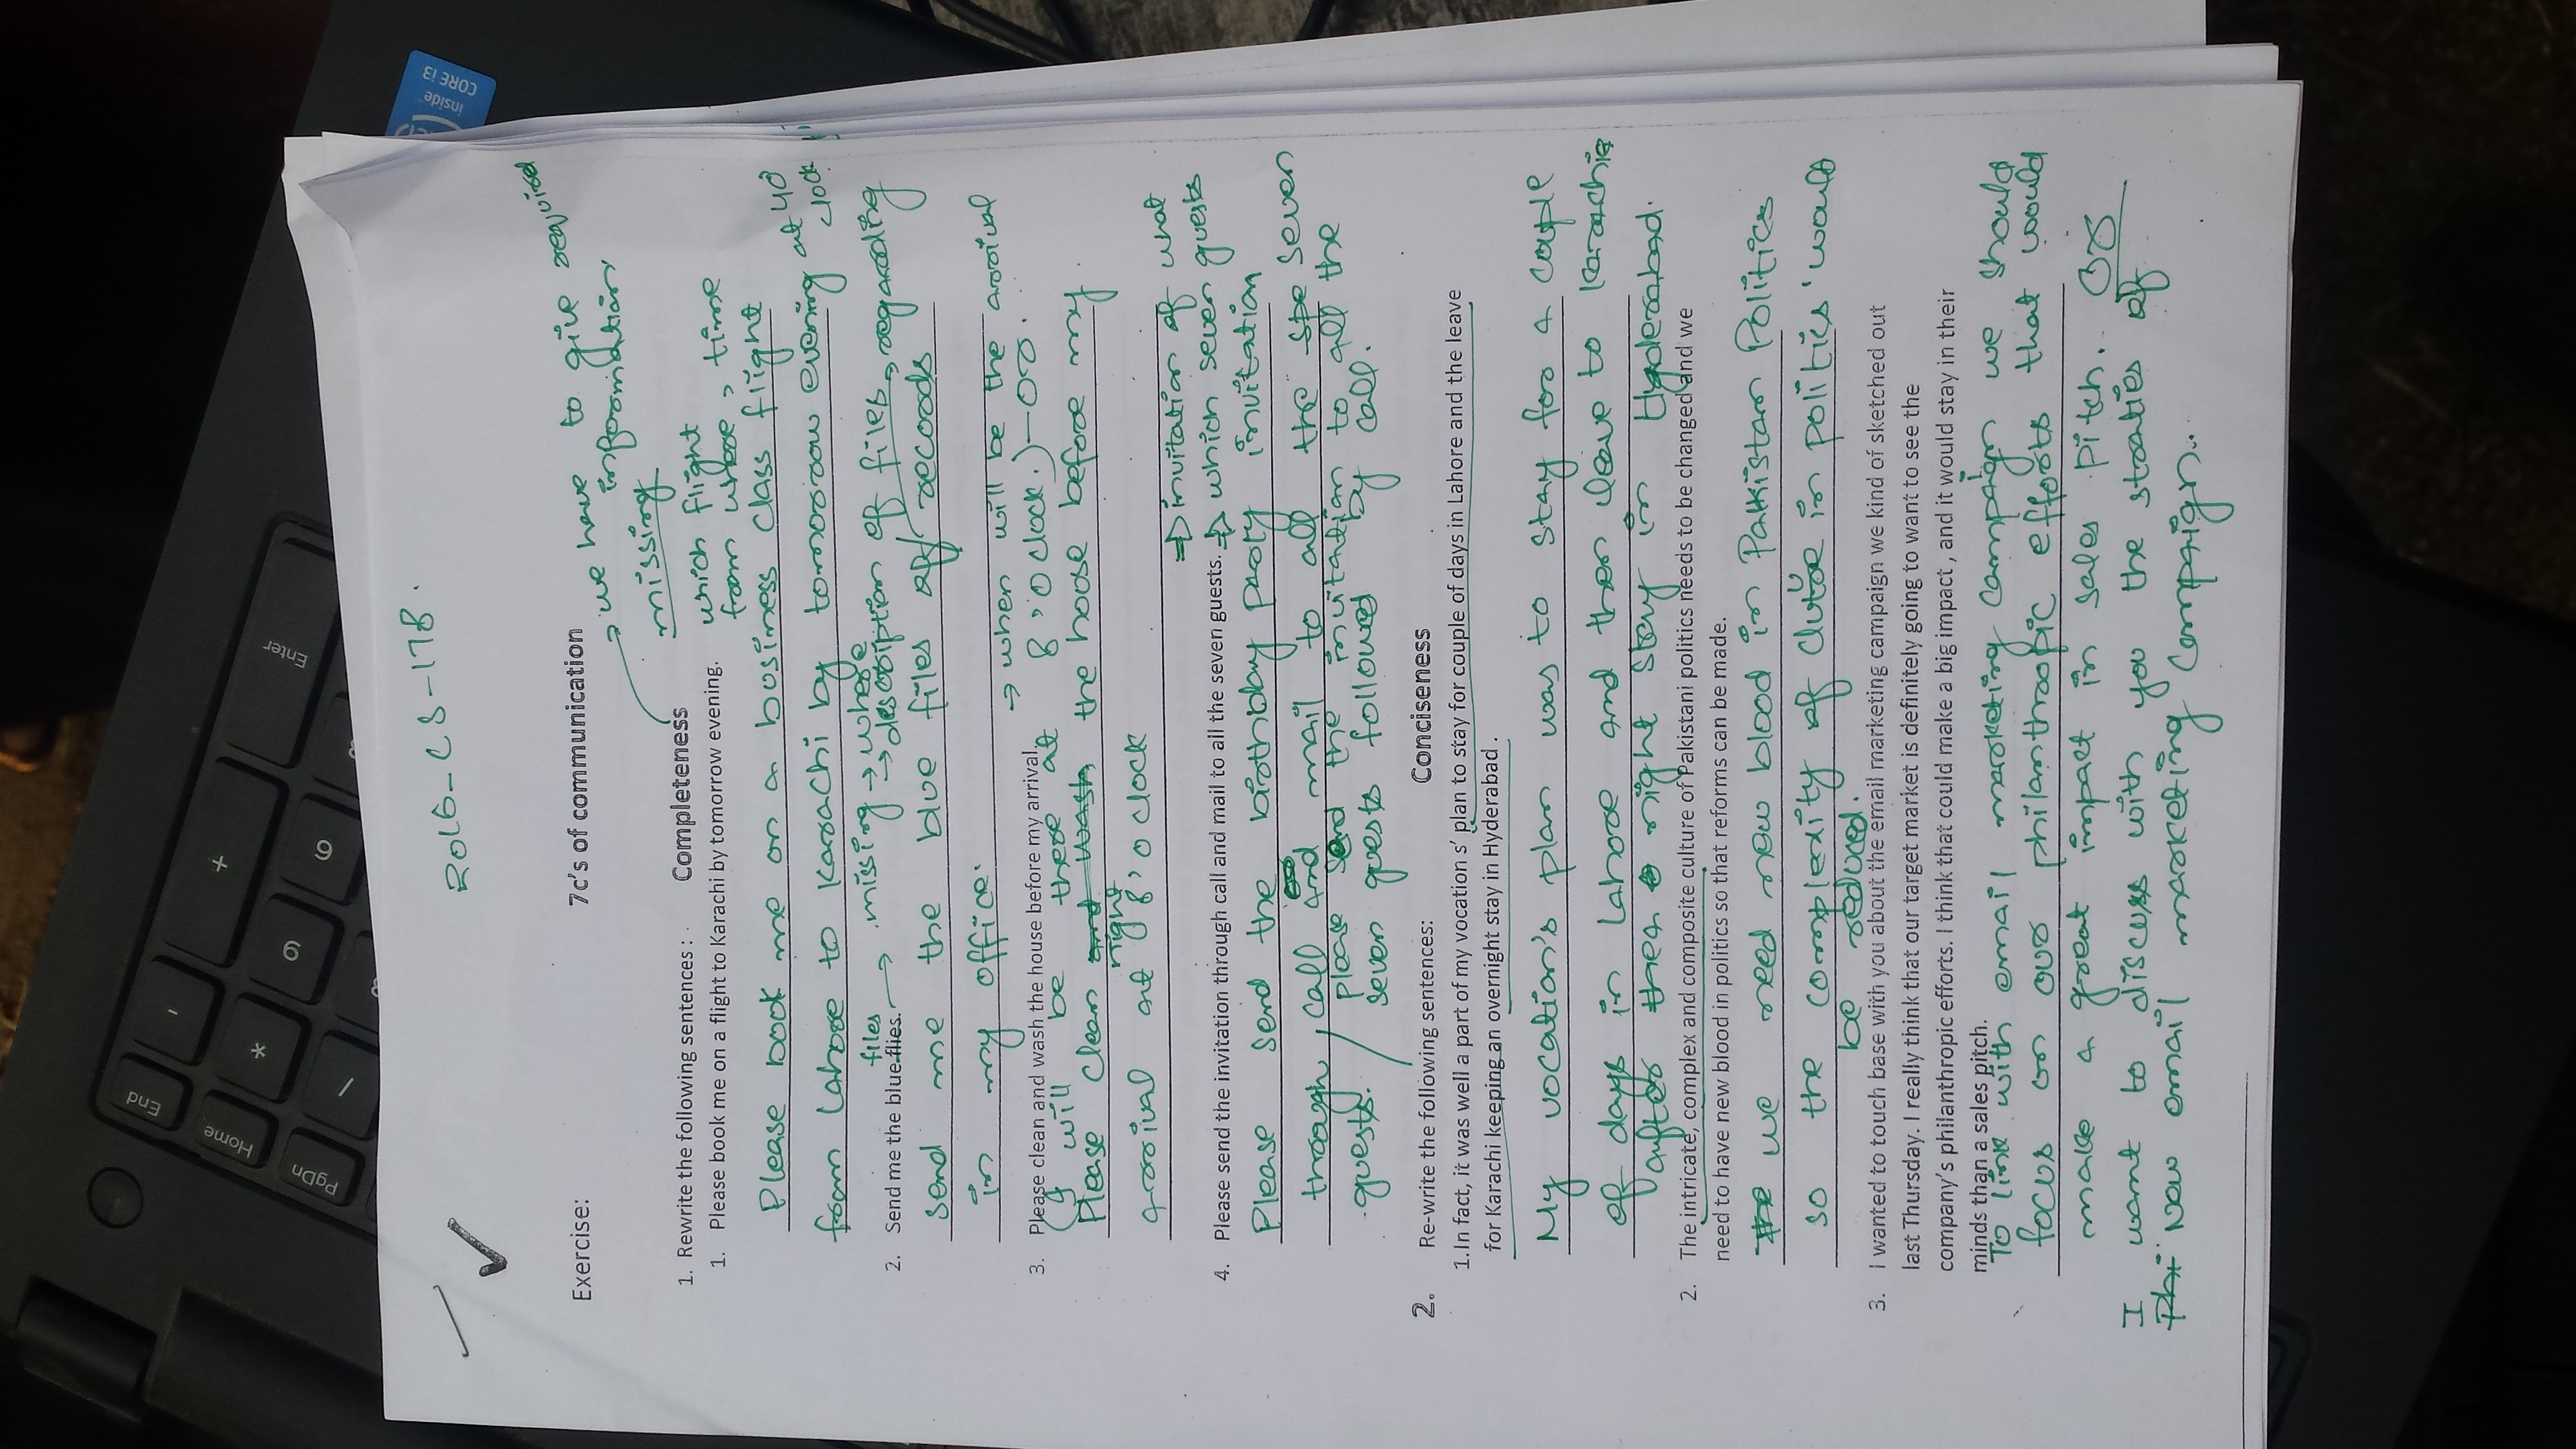 2016-CS-178.
Exercise:
7c's of communication
→ we have to give required
information
missing
1. Rewrite the following sentences :
Completeness
which flight
from where, time
1. Please book me on a flight to Karachi by tomorrow evening.
Please book me on a business class flight
from Lahore to Karachi by tomorrow evening at 40
clock
files → missing → where
→ description of files, regarding
2. Send me the blue flies.
send me the blue files of/records
in my office.
3. Please clean and wash the house before my arrival. → when will be the arrival
(I will be there at 8,0 clock.)-or.
Please clean and wash the house before my
arrival at night 8,0 clock
⇒ invitation of what
4. Please send the invitation through call and mail to all the seven guests. ⇒ which seven guests
Please send the birthday party invitation
through call and mail to all the seven
guests. / Please send the invitation to all the
seven guests followed by call.
2. Re-write the following sentences:
Conciseness
1.In fact, it was well a part of my vocation s' plan to stay for couple of days in Lahore and the leave
for Karachi keeping an overnight stay in Hyderabad .
My vocation's plan was to stay for a couple
of days in Lahore and then leave to karachi
after night stay in Hyderabad.
2. The intricate, complex and composite culture of Pakistani politics needs to be changed and we
need to have new blood in politics so that reforms can be made.
The we need new blood in Pakistan Politics
so the complexity of cluture in politics would
be reduced.
3. I wanted to touch base with you about the email marketing campaign we kind of sketched out
last Thursday. I really think that our target market is definitely going to want to see the
company's philanthropic efforts. I think that could make a big impact , and it would stay in their
minds than a sales pitch.
To line with email marketing campaign we should
focus on our philanthropic efforts that would
make a great impact in sales pitch. Or
I want to discuss with you the straties of
new email marketing campaign.
intel inside
CORE i3
Enter
+
-
*
/
9
6
End
Home
PgDn